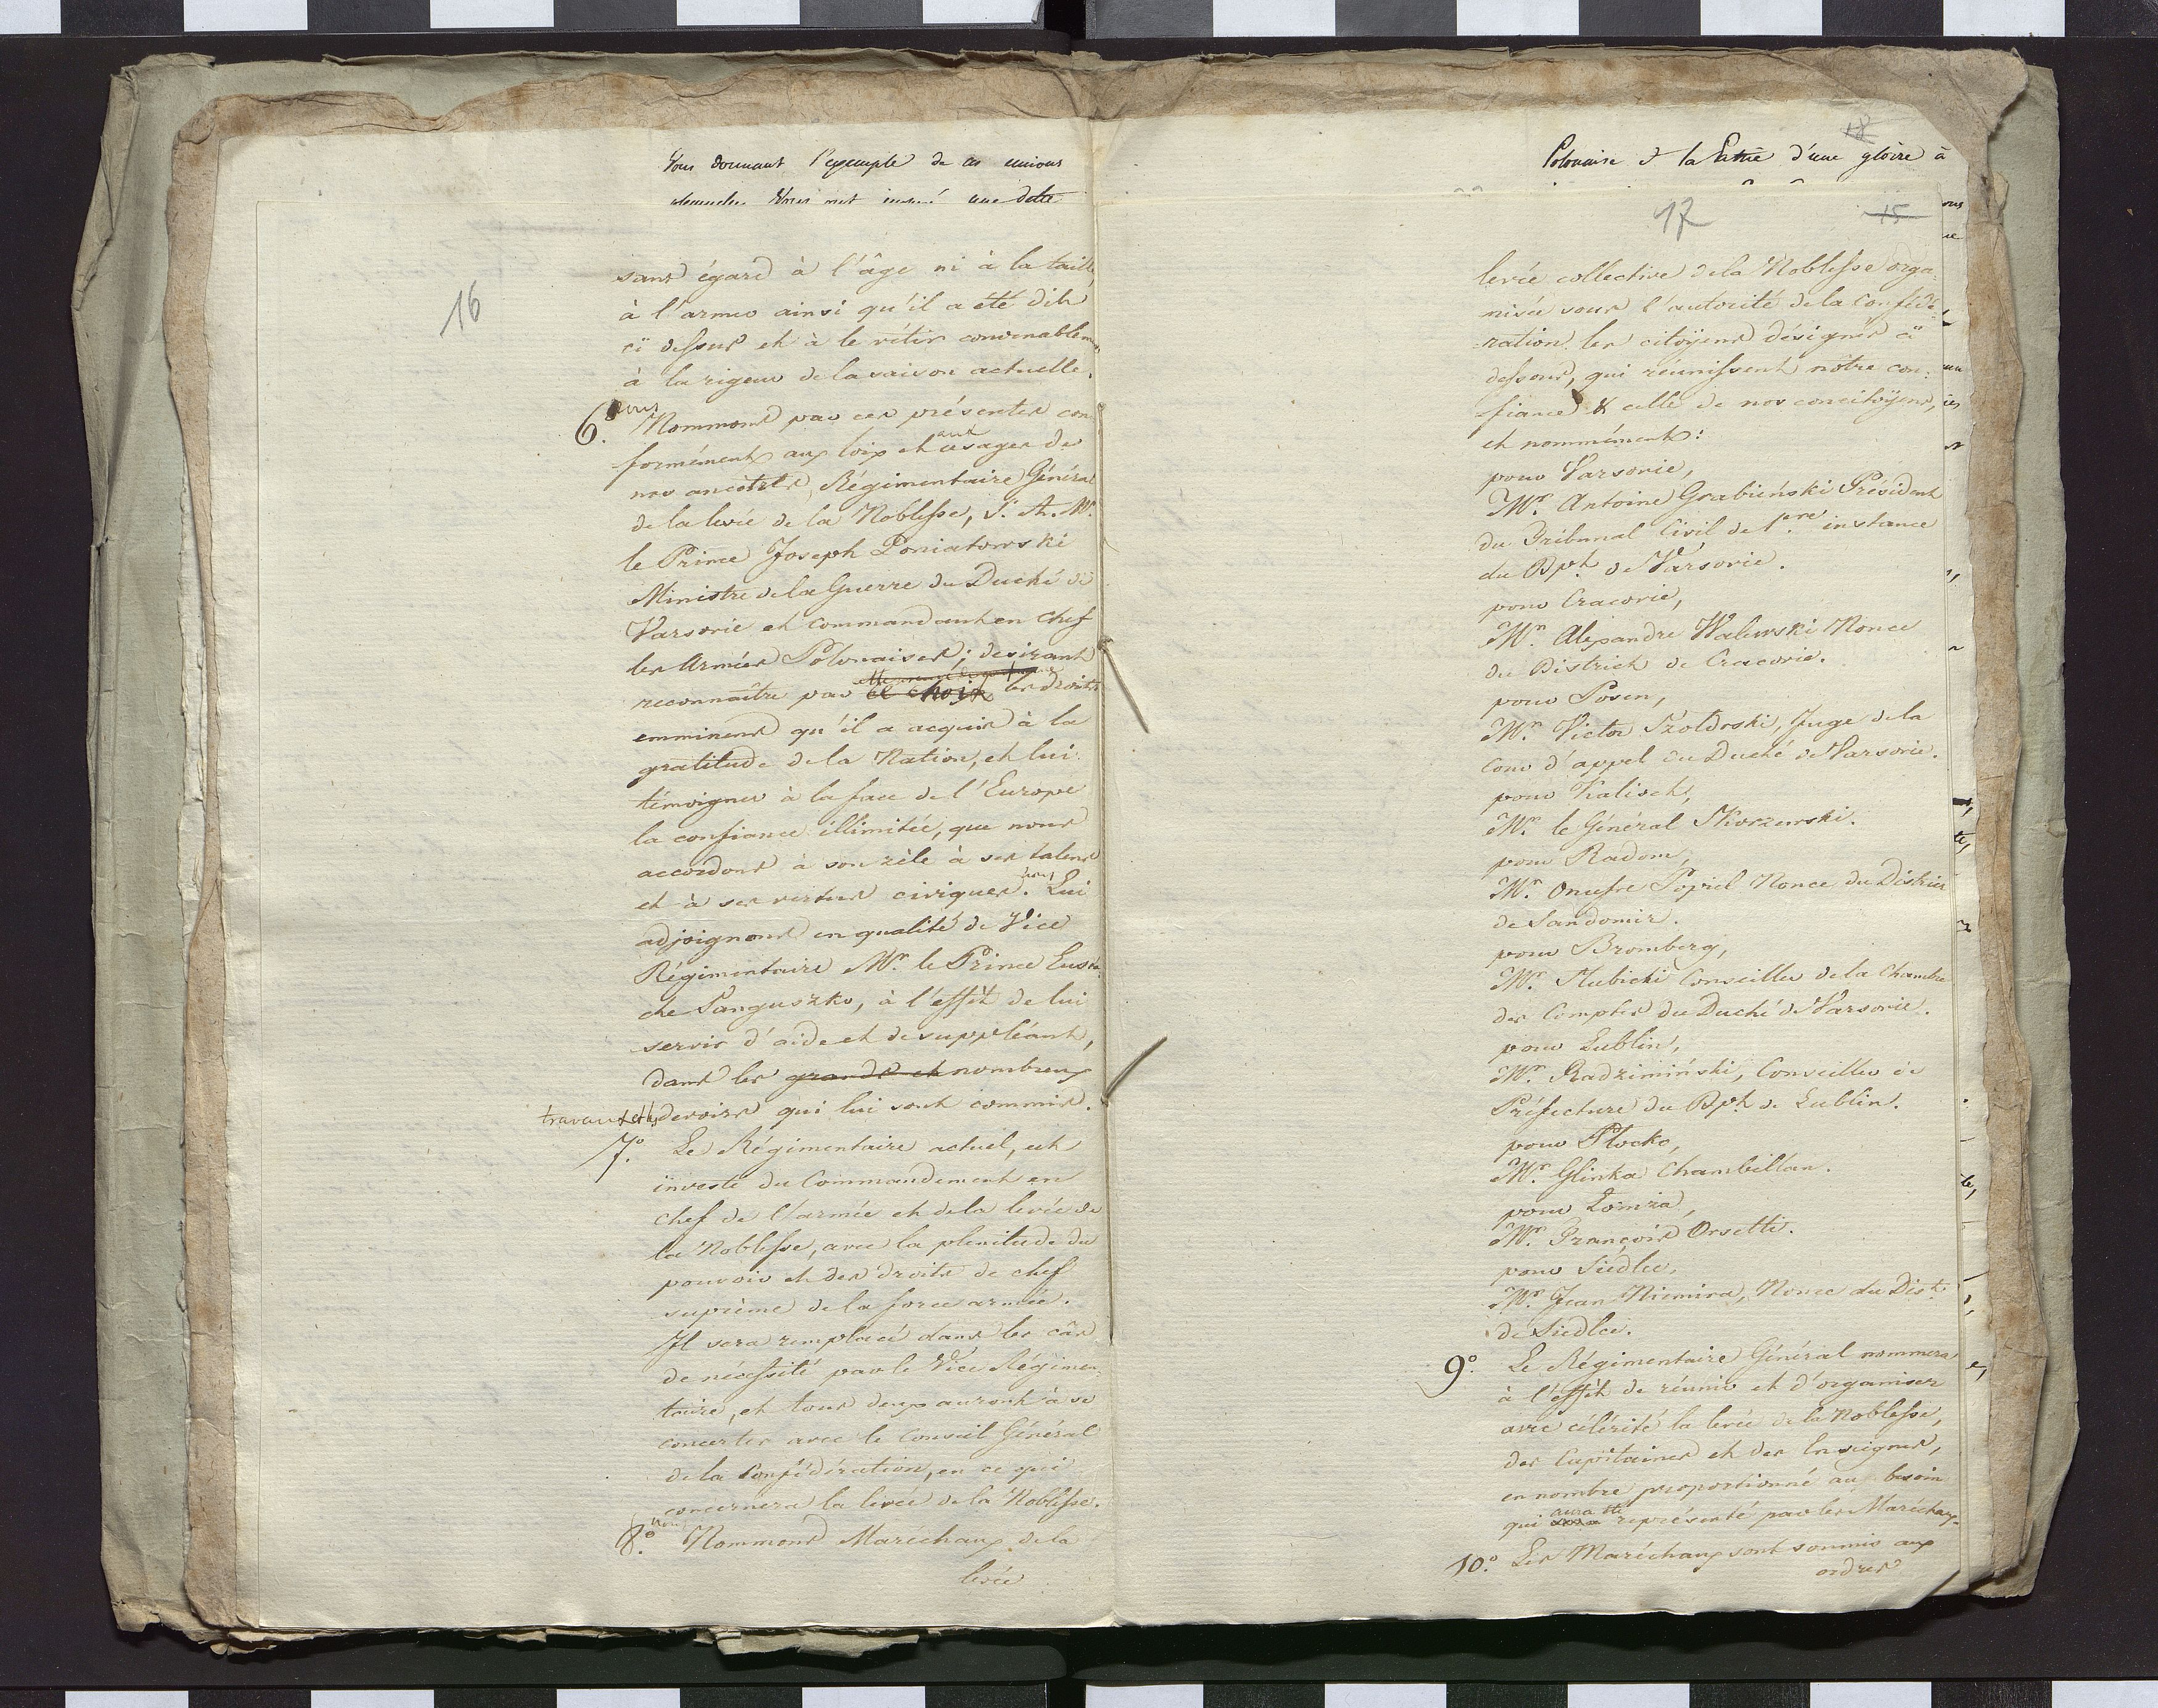 Vous donnant l'exemple de ces unions
une dette
16
sans égard à l'âge ni à la taille,
à l'armer ainsi qu'il a été dit
cï dessus et à le vétir convenablement
à la rigeur de la saison actuelle.
6.° nous Nommons par ces présentes con
formément aux loix et aux usages de
nos ancêtres, Régimentaire Général
de la levée de la Noblesse, S. A. Mr.
le Prince Joseph Poniatowski
Ministre de la Guerre du Duché de
Varsovie et Commandant en Chef
les Armées Polonaises; desirant
reconnaître par ce choix les droits
emminens qu'il a acquis à la
gratitude de la Nation, et lui
témoigner à la face de l'Europe
la confiance illimitée, que nous
accordons à son zèle à ses talens
et à ses vertus civiques. nous Lui
adjoignons en qualité de Vice
Régimentaire Mr. le Prince Eusta
che Sanguszko, à l'effèt de lui
servir d'aide et de suppléant,
dans les grands et nombreux
travaux et les devoirs qui lui sont commis.
7.° Le Régimentaire actuel, est
investi du Commandement en
chef de l'armée et de la levée de
la Noblesse, avec la plenitude du
pouvoir et des droits de chef
suprème de la force armée.
Il sera remplacé dans les câs
de nécessité par le Vice Régimen
taire, et tous deux auront à se
concerter avec le Conseil Général
de la Confédération, en ce qui
concernera la levée de la Noblesse.
8.° nous Nommons Marechaux de la
levée
18
Polonaise et la Patrie d'une gloire à
17
15
levée collective de la Noblesse orga
nisée sous l'autorité de la Confédé
ration, les citoÿens désignés cï
dessous, qui réunissent nôtre con
fiance & celle de nos concitoÿens,
et nommément:
pour Varsovie,
Mr. Antoine Grabieński Président
du Tribunal Civil de 1ere instance
du Dpt. de Varsovie.
pour Cracovie,
Mr. Alexandre Walewski Nonce
du District de Cracovie.
pour Posen,
Mr. Victor Szołdrski, Juge de la
Cour d'appel du Duché de Varsovie.
pour Kalisch,
Mr. le Général Skórzewski.
pour Radom,
Mr. Onufre Popiel Nonce du District
de Sandomir.
pour Bromberg,
Mr. Słubicki Conseiller de la Chambre
des Comptes du Duché de Varsovie.
pour Lublin,
Mr. Radzimiński, Conseiller de
Préfecture du Dpt. de Lublin.
pour Plocko,
Mr. Glinka Chambellan.
pour Łomza,
Mr. François Orsetti.
pour Siedlce,
Mr. Jean Niemira, Nonce du Dist.
de Siedlce.
9.° Le Régimentaire Général nommera
à l'effèt de réunir et d'organiser
avec célérité la levée de la Noblesse,
des Capitaines et des Enseignes,
en nombre proportionné au besoin
qui aura été représenté par les Maréchaux.
10.° Les Maréchaux sont soumis aux
ordres